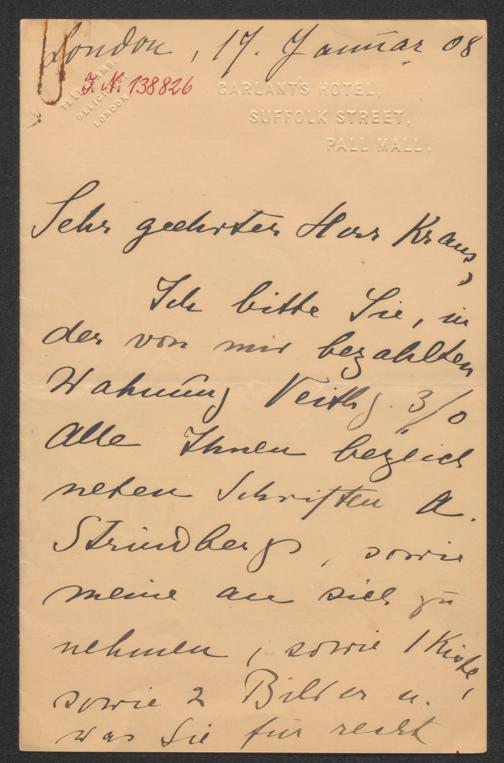 London, 17. Januar 08
J. N. 138826
LONDON
GARLANT'S HOTEL,
SUFFOLK STREET,
PALL MALL.
Sehr geehrter Herr Kraus,
Ich bitte Sie, in
der von mir bezahlten
Wohnung Veithg. 3/0
Alle Ihnen bezeich
neten Schriften A.
Strindbergs, sowie
meine an sich zu
nehmen, sowie 1 Kiste,
sowie 2 Bilder u.
was Sie für recht